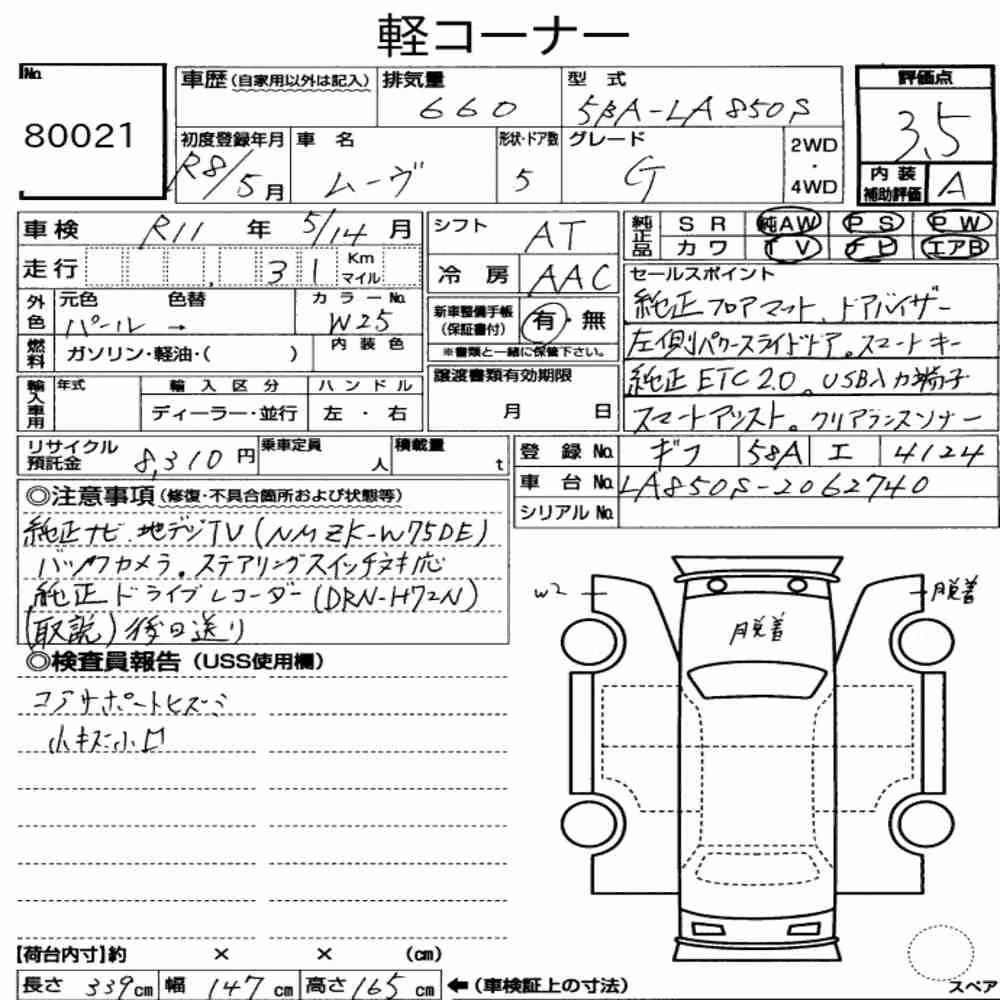 軽コーナー
No.
80021
車歴(自家用以外は記入)
排気量
660
型式
5BA-LA850S
評価点
3.5
初度登録年月
R8/5月
車名
ムーヴ
形状・ドア数
5
グレード
G
2WD
・
4WD
内装
補助評価
A
車検 R11 年 5/14 月
走行 31 Km マイル
シフト AT
冷房 AAC
純正品 SR 純AW PS PW
カワ TV ナビ エアB
外色 元色 色替 カラーNo.
パール → W25
燃料 ガソリン・軽油・( )
内装色
新車整備手帳
(保証書付)
有・無
※書類と一緒に保管下さい。
セールスポイント
純正フロアマット、ドアバイザー
左側パワースライドドア。スマートキー
純正ETC2.0。USB入力端子
スマートアシスト。クリアランスソナー
輸入車用 年式 輸入区分 ハンドル
ディーラー・並行 左・右
譲渡書類有効期限
月 日
リサイクル
預託金
8,310円
乗車定員
人
積載量
t
登録No. ギフ 58A エ 4124
車台No. LA850S-2062740
シリアルNo.
◎注意事項(修復・不具合箇所および状態等)
純正ナビ、地デジTV(NMZK-W75DE)
バックカメラ。ステアリングスイッチ対応
純正ドライブレコーダー(DRN-H72N)
(取説)後日送り
◎検査員報告(USS使用欄)
コアサポートヒズミ
小キズ小凹
W2
脱着
脱着
【荷台内寸】約 × × (cm)
長さ 339cm 幅 147cm 高さ 165cm ←(車検証上の寸法)
スペア